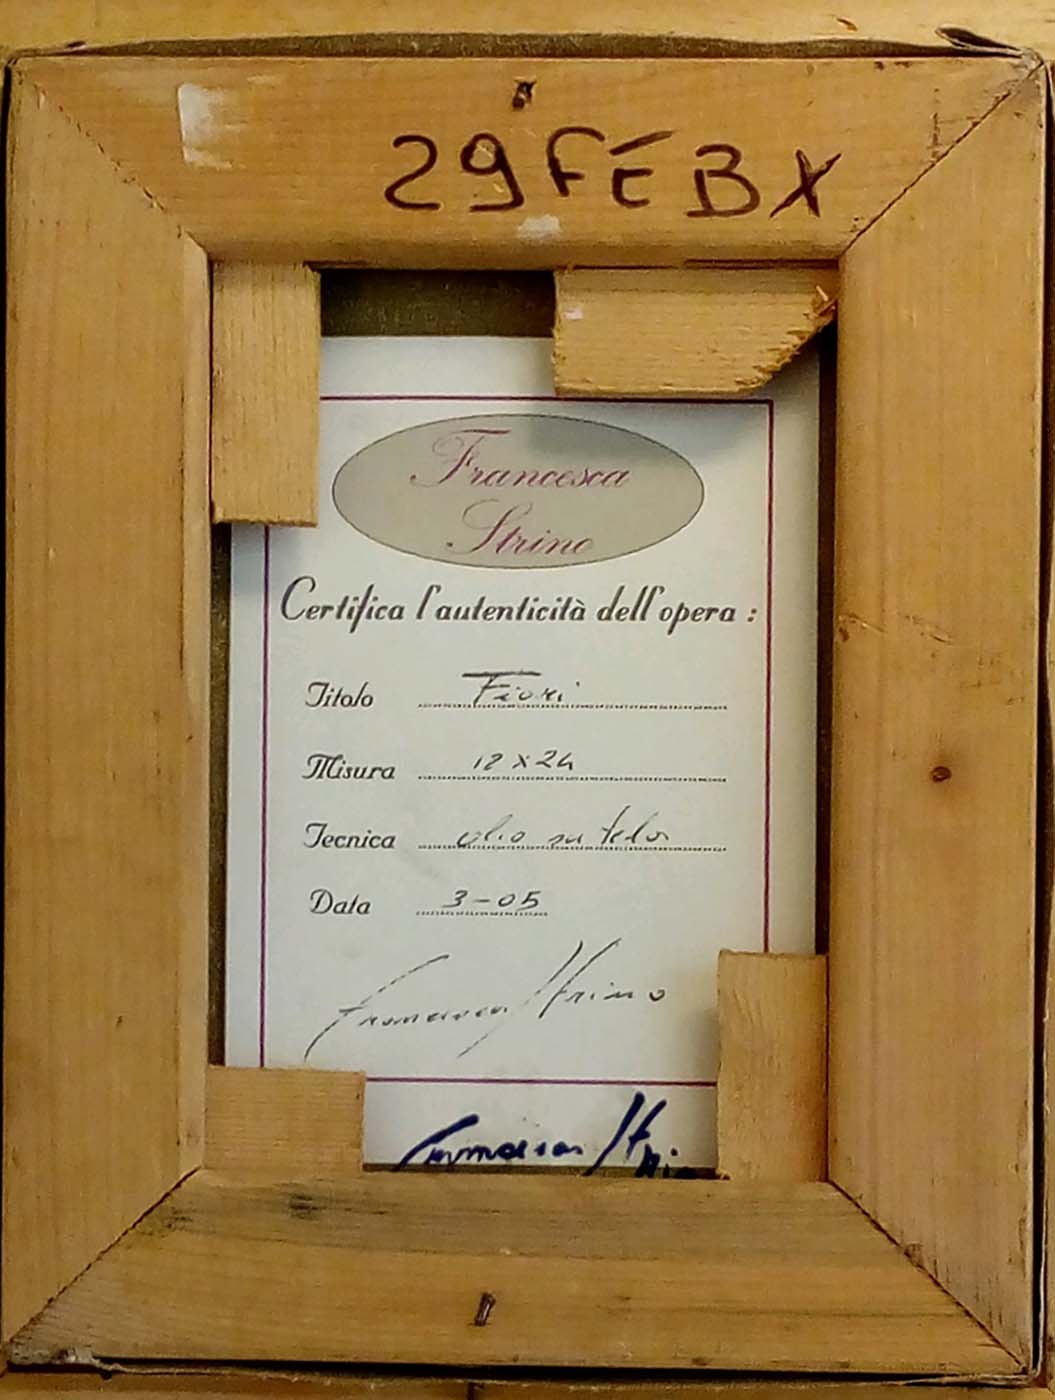 29 FÉB X
Francesca
Strino
Certifica l'autenticità dell'opera :
Titolo Fiori
Misura 18x24
Tecnica olio su tela
Data 3-05
Francesca Strino
Francesca Strino